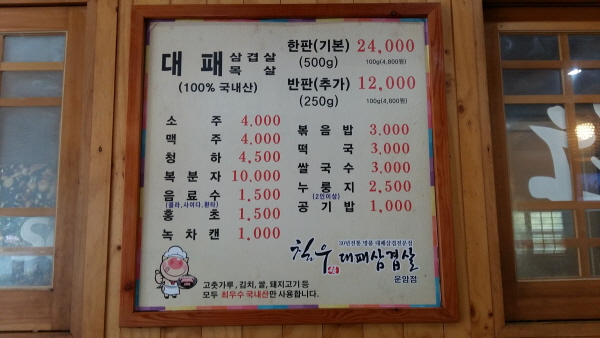 대패 삼겹살 목살
(100% 국내산)
한판(기본) 24,000
(500g) 100g(4,800원)
반판(추가) 12,000
(250g) 100g(4,800원)
소주 4,000
맥주 4,000
청하 4,500
복분자 10,000
음료수 1,500
(콜라,사이다,환타)
홍초 1,500
녹차캔 1,000
볶음밥 3,000
떡국 3,000
쌀국수 3,000
누룽지 2,500
(2인이상)
공기밥 1,000
30년전통 명품 대패삼겹전문점
최우 대패삼겹살
운암점
고춧가루, 김치, 쌀, 돼지고기 등
모두 최우수 국내산만 사용합니다.